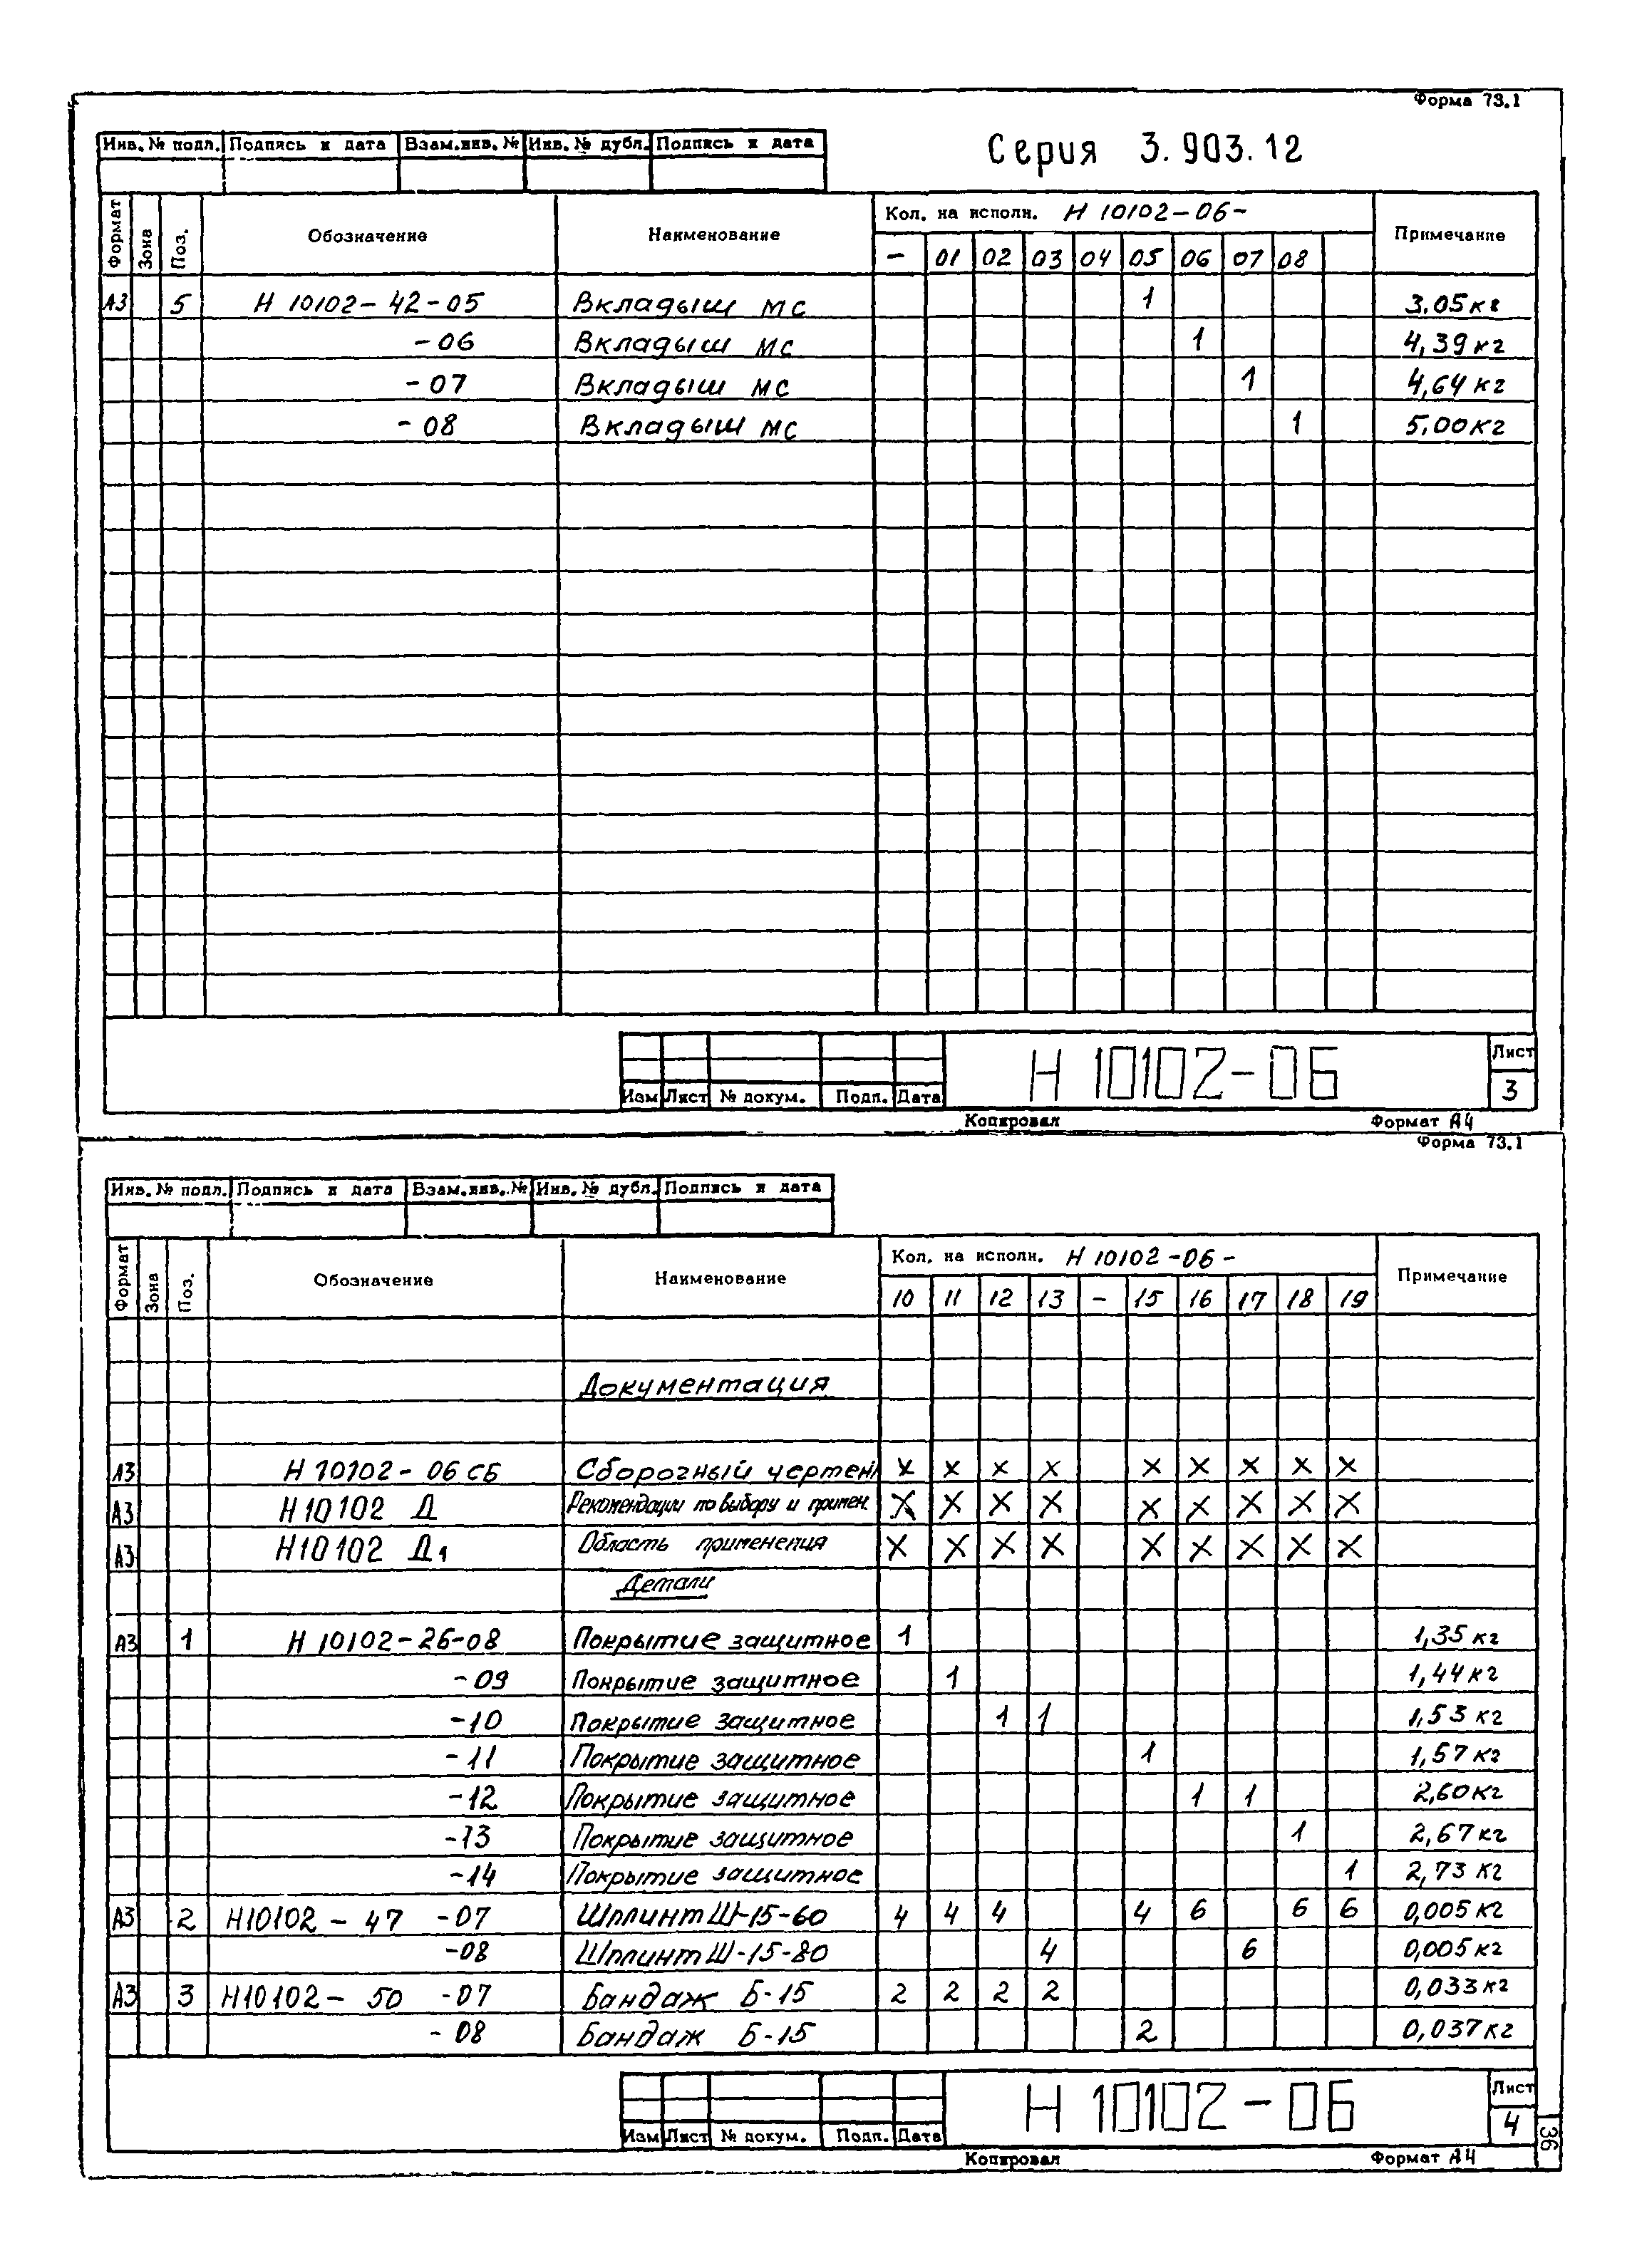 Форма 73.1
Инв. № подл. Подпись и дата Взам.инв. № Инв. № дубл. Подпись и дата
Серия 3.903.12
Формат Зона Поз. Обозначение Наименование Кол. на исполн. Н 10102-06- Примечание
- 01 02 03 04 05 06 07 08
А3 5 Н 10102-42-05 Вкладыш МС 1 3,05 кг
-06 Вкладыш МС 1 4,39 кг
-07 Вкладыш МС 1 4,64 кг
-08 Вкладыш МС 1 5,00 кг
Изм Лист № докум. Подп. Дата
Н 10102-06
Лист
3
Копировал Формат А4
Форма 73.1
Инв. № подл. Подпись и дата Взам.инв. № Инв. № дубл. Подпись и дата
Формат Зона Поз. Обозначение Наименование Кол. на исполн. Н 10102-06- Примечание
10 11 12 13 - 15 16 17 18 19
Документация
А3 Н 10102-06 СБ Сборочный чертеж х х х х х х х х х
А3 Н10102 Д Рекомендации по выбору и примен. х х х х х х х х х
А3 Н10102 Д1 Область применения х х х х х х х х х
Детали
А3 1 Н 10102-26-08 Покрытие защитное 1 1,35 кг
-09 Покрытие защитное 1 1,44 кг
-10 Покрытие защитное 1 1 1,53 кг
-11 Покрытие защитное 1 1,57 кг
-12 Покрытие защитное 1 1 2,60 кг
-13 Покрытие защитное 1 2,67 кг
-14 Покрытие защитное 1 2,73 кг
А3 2 Н10102-47 -07 Шплинт Ш-15-60 4 4 4 4 6 6 6 0,005 кг
-08 Шплинт Ш-15-80 4 6 0,005 кг
А3 3 Н10102-50 -07 Бандаж Б-15 2 2 2 2 0,033 кг
-08 Бандаж Б-15 2 0,037 кг
Изм Лист № докум. Подп. Дата
Н 10102-06
Лист
4
36
Копировал Формат А4